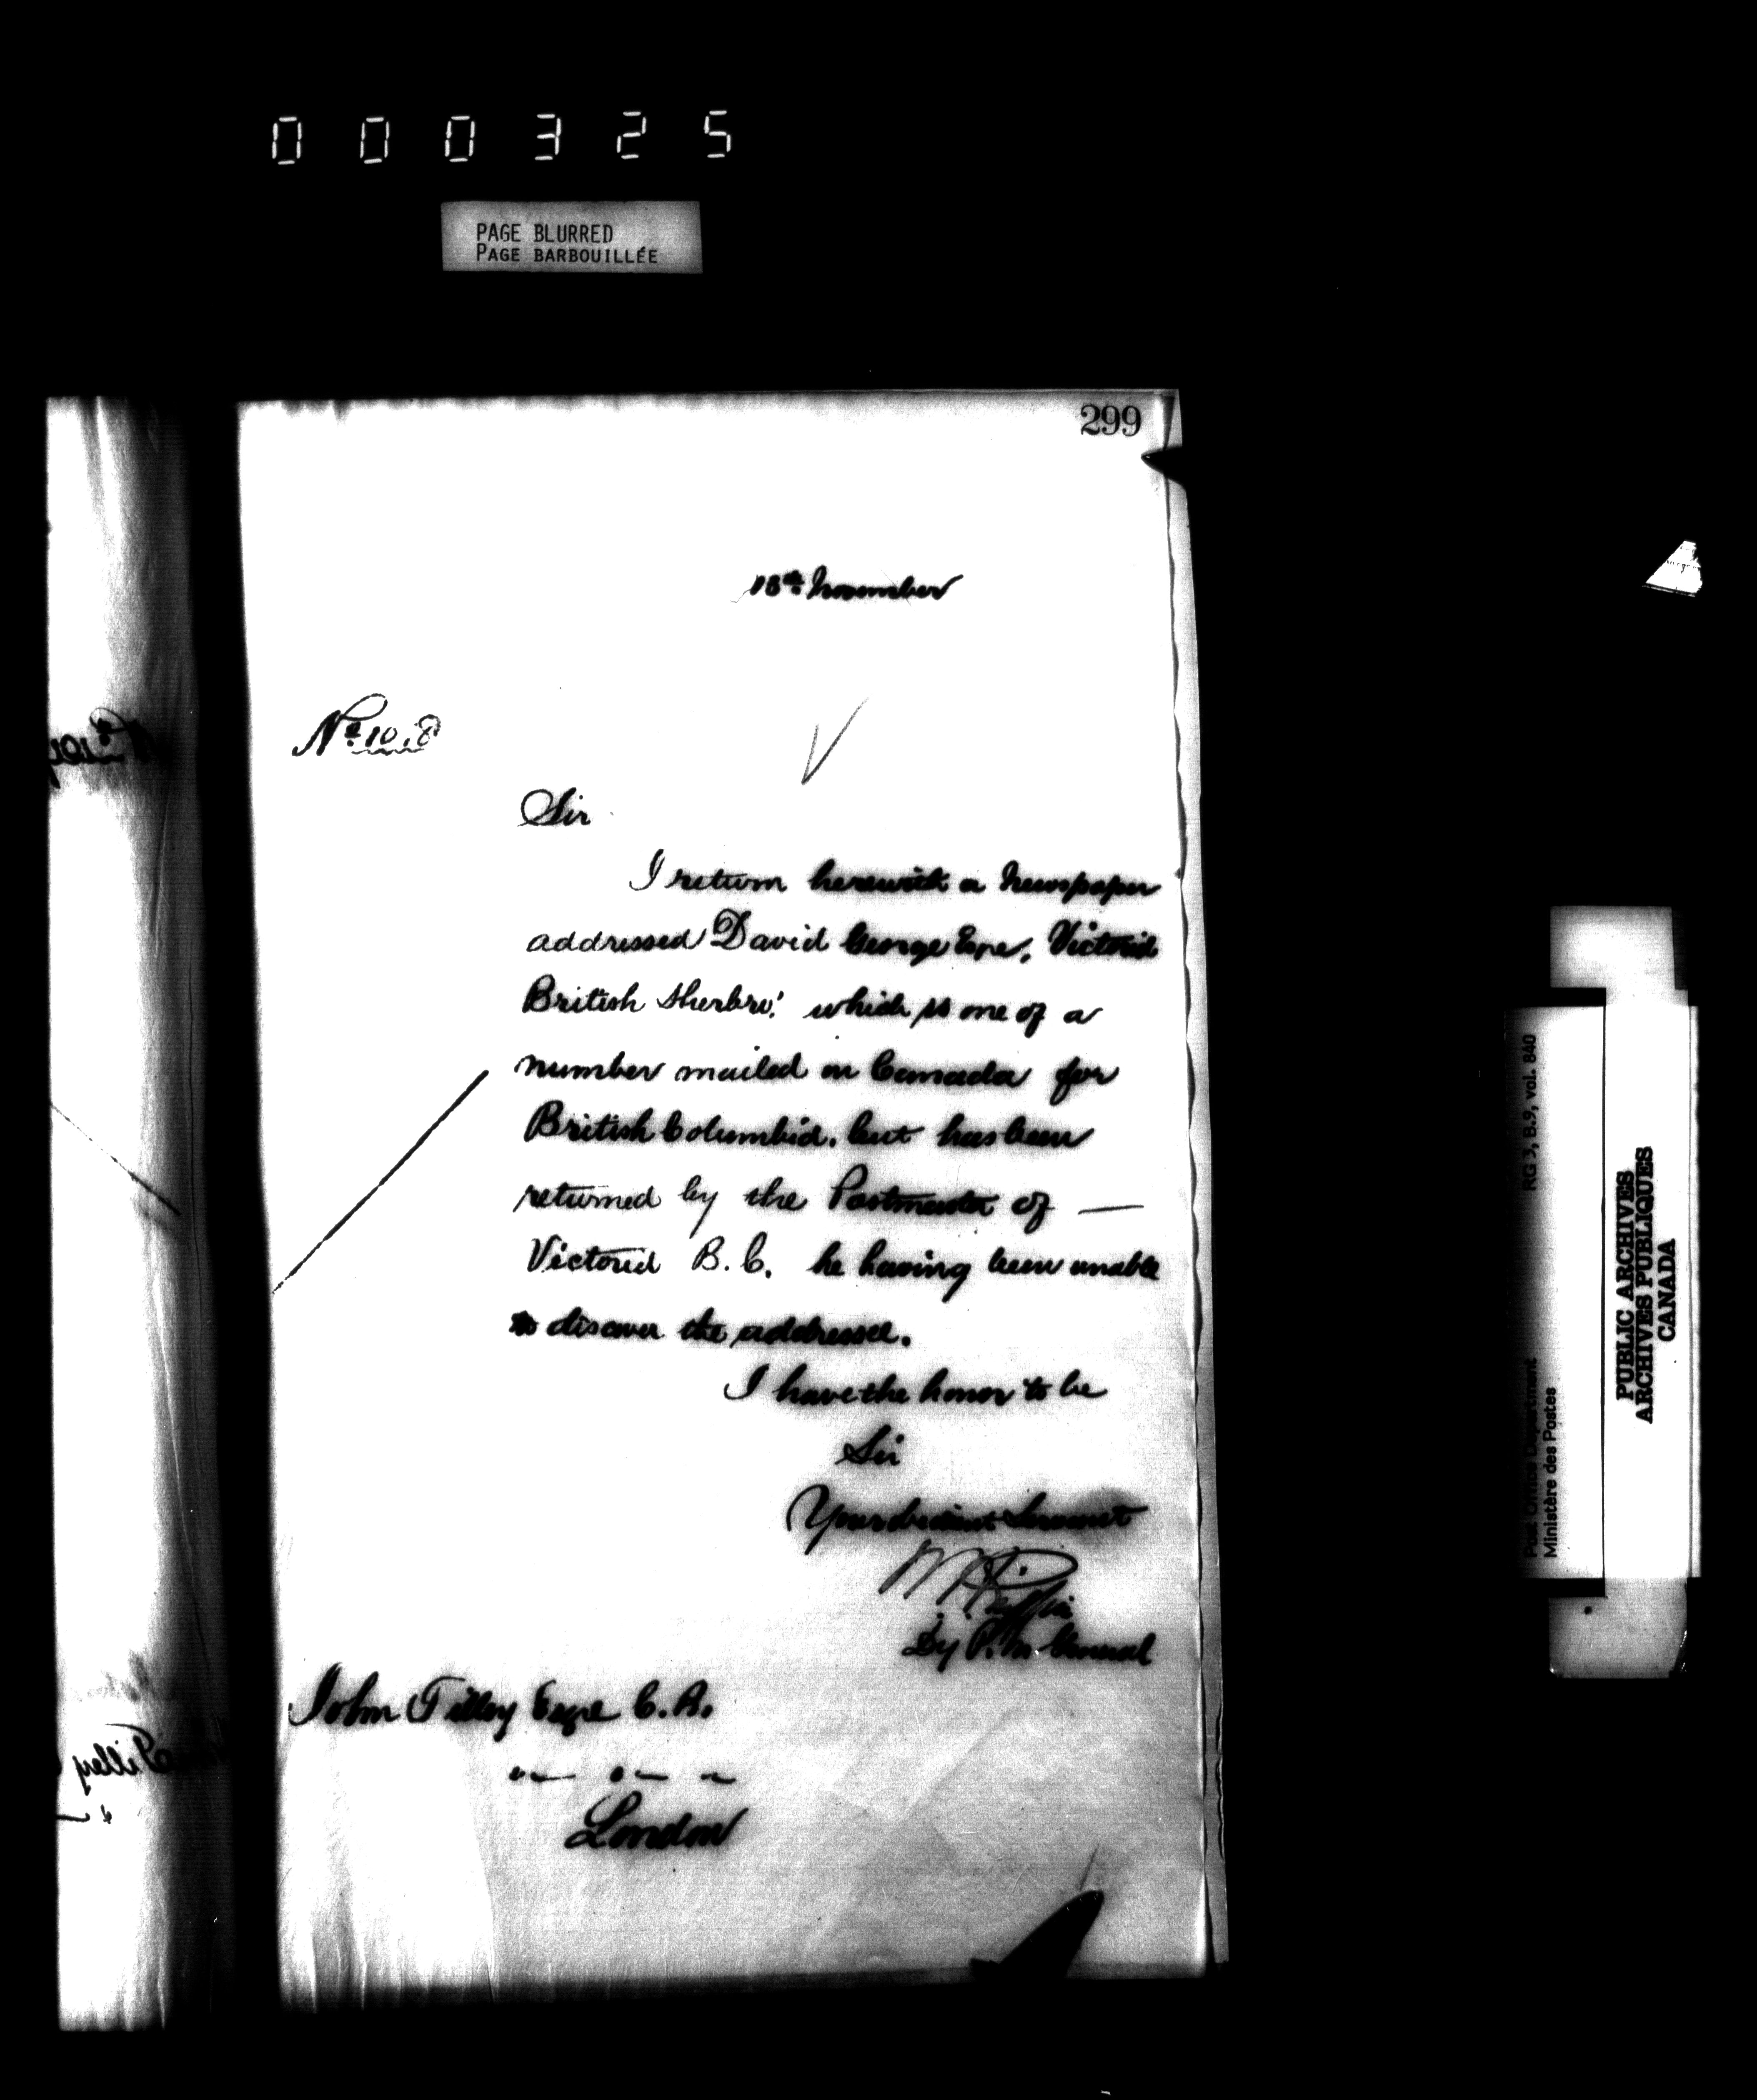 000325
PAGE BLURRED
PAGE BARBOUILLÉE
299
18th November
Sir
I return herewith a Newspaper
addressed David George Esqre, Victoria
British which is one of a
number mailed in Canada for
British Columbia, but has been
returned by the Postmaster of —
Victoria B.C. he having been unable
to discover the addressee.
I have the honor to be
Sir
Your obedient Servant
Dy P. M. General
John Tilley Esqre C.B.
London
RG 3, B.9, vol. 840
Post Office Department
Ministère des Postes
PUBLIC ARCHIVES
ARCHIVES PUBLIQUES
CANADA